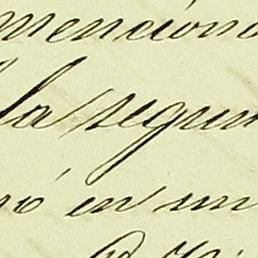 menciona
la segun
ó en un